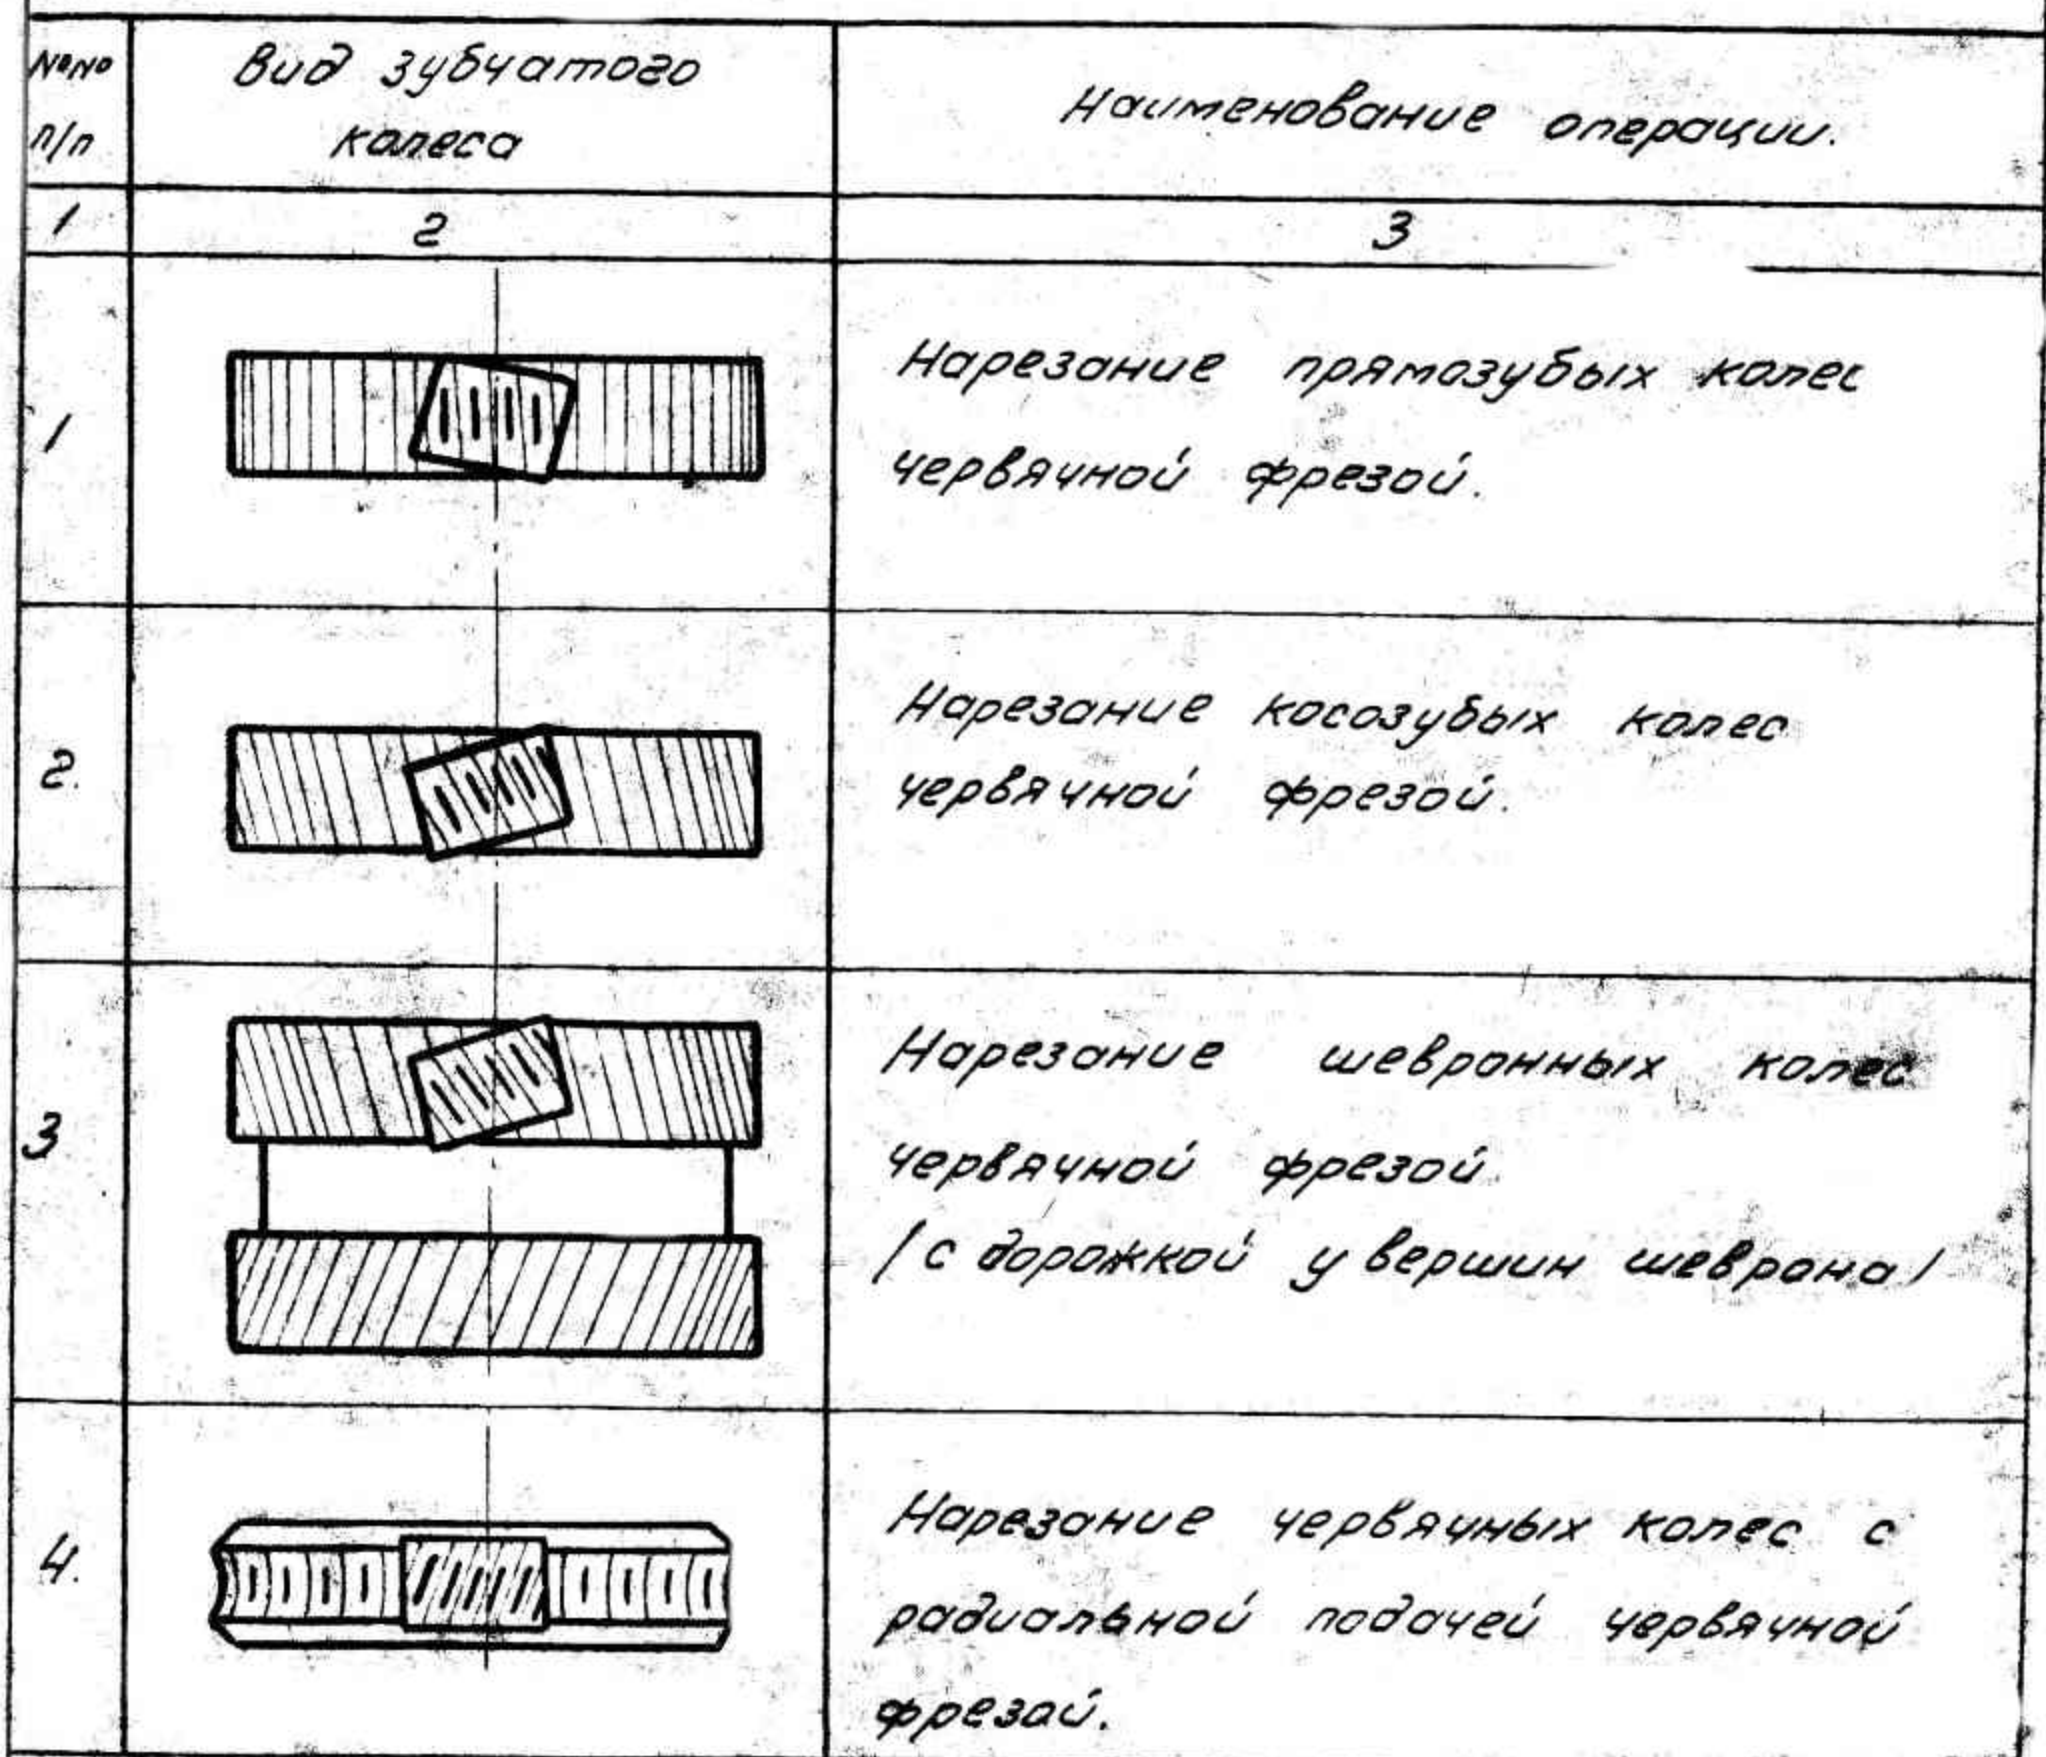 №№ Вид зубчатого Наименование операции.
п/п колеса
1 2 3
1 Нарезание прямозубых колес
червячной фрезой.
2. Нарезание косозубых колес
червячной фрезой.
3 Нарезание шевронных колес
червячной фрезой.
/с дорожкой у вершин шеврона/
4. Нарезание червячных колес с
радиальной подачей червячной
фрезой.